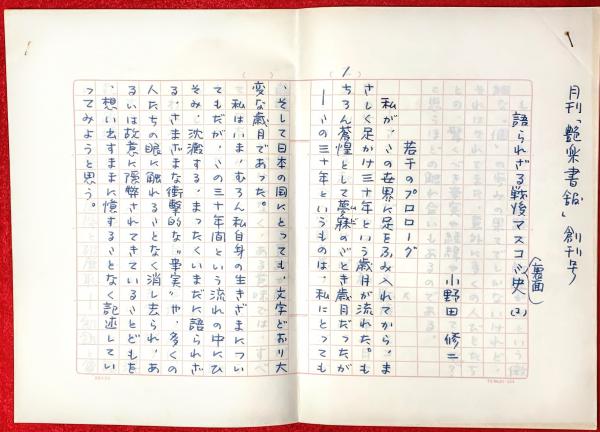 月刊「艶楽書館」創刊号
語られざる戦後マスコミ裏面史(2)
小野田修二
若干のプロローグ
私が、この世界に足をふみ入れてから、ま
さしく足かけ三十年という歳月が流れた。も
ちろん蒼惶として夢寐のごとき歳月だったが
ムビ
ーこの三十年というものは、私にとっても
1.
、そして日本の国にとっても、文字どおり大
変な歳月であった。
私はいま、むろん私自身の生きざまについ
てもだが、この三十年間という流れの中にひ
そみ、沈澱する、まったくいまだに語られざ
る、さまざまな衝撃的な"事実"や、多くの
人たちの眼に触れることなく消し去られ、あ
るいは故意に隠弊されてきていることどもを
、想い出すままに憶することなく記述してい
ってみようと思う。